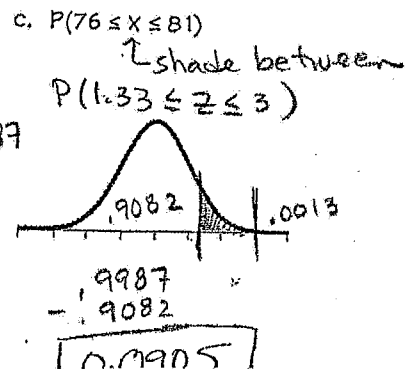 c. P(76 ≤ x ≤ 81)
↑ shade between
P(1.33 ≤ z ≤ 3)
87
.9082 .0013
.9987
- .9082
0.0905